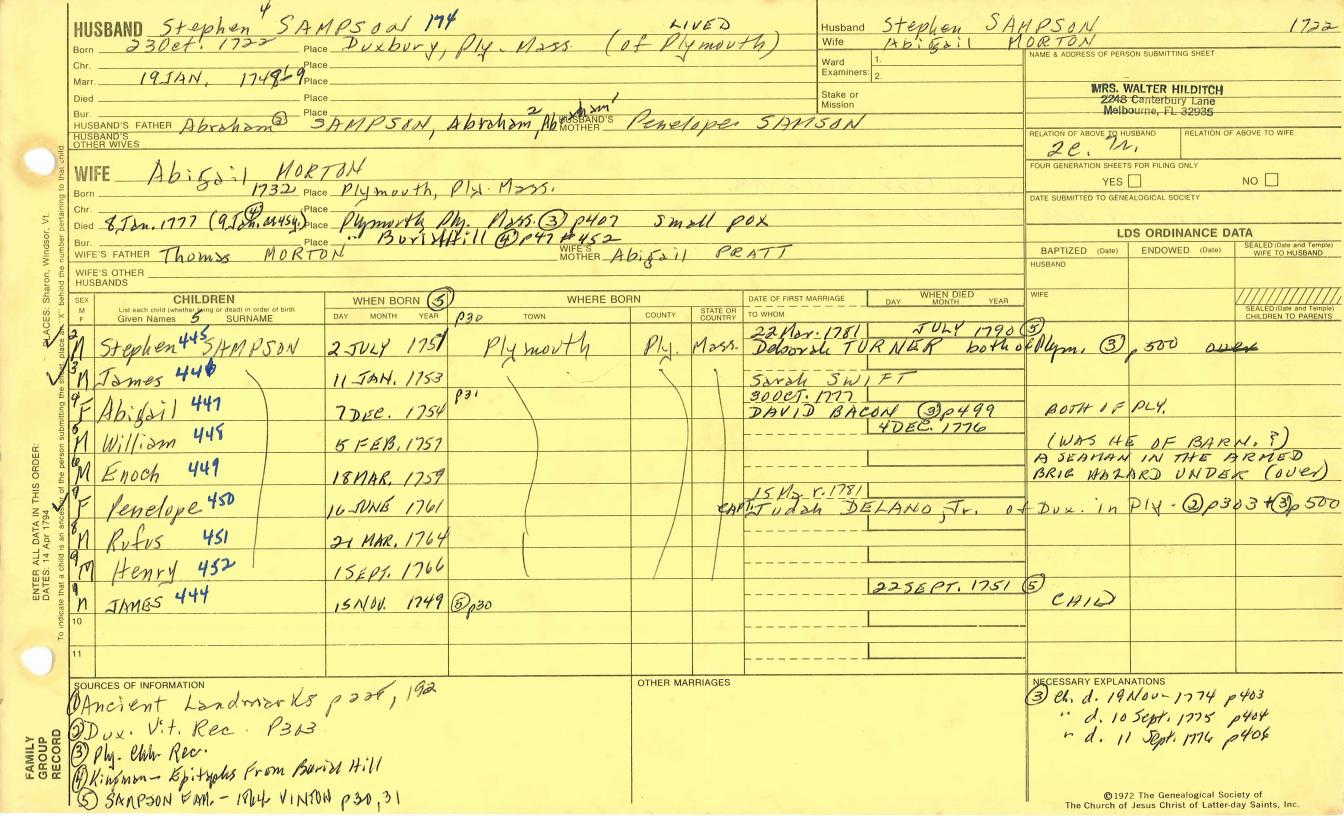 HUSBAND Stephen 4 SAMPSON 174
Born 23 Oct. 1722 Place Duxbury, Ply. Mass. (of Plymouth) LIVED
Chr. Place
Marr. 19 JAN, 1748-9 Place
Died Place
Bur. Place
HUSBAND'S FATHER Abraham 3 SAMPSON, Abraham 2, Abraham 1 HUSBAND'S MOTHER Penelope SAMSON
HUSBAND'S OTHER WIVES
Husband Stephen SAMPSON 1722
Wife Abigail MORTON
Ward Examiners 1. 2.
Stake or Mission
NAME & ADDRESS OF PERSON SUBMITTING SHEET
MRS. WALTER HILDITCH
2248 Canterbury Lane
Melbourne, FL 32935
RELATION OF ABOVE TO HUSBAND RELATION OF ABOVE TO WIFE
FOUR GENERATION SHEETS FOR FILING ONLY
YES NO
DATE SUBMITTED TO GENEALOGICAL SOCIETY
WIFE Abigail MORTON
Born 1732 Place Plymouth, Ply. Mass.
Chr. Place
Died 8 Jan. 1777 (9 Jan. Place Plymouth Ply. Mass. ③ p407 Small pox
Bur. Place " Burial Hill ④ p47 #452
WIFE'S FATHER Thomas MORTON WIFE'S MOTHER Abigail PRATT
WIFE'S OTHER HUSBANDS
LDS ORDINANCE DATA
BAPTIZED (Date) ENDOWED (Date) SEALED (Date and Temple) WIFE TO HUSBAND
HUSBAND
WIFE
SEALED (Date and Temple) CHILDREN TO PARENTS
SEX M F
CHILDREN
List each child (whether living or dead) in order of birth.
Given Names 5 SURNAME
WHEN BORN ⑤
DAY MONTH YEAR
WHERE BORN
p30 TOWN COUNTY STATE OR COUNTRY
DATE OF FIRST MARRIAGE
TO WHOM
WHEN DIED
DAY MONTH YEAR
22 Mar. 1781 JULY 1790 ⑤
2 M Stephen 445 SAMPSON 2 JULY 1751 Plymouth Ply. Mass. Deborah TURNER both of Plym. ③ p 500 over
3 M James 446 11 JAN. 1753 Sarah SWIFT
30 OCT. 1777
4 F Abigail 447 7 DEC. 1754 p31 DAVID BACON ③ p499 BOTH OF PLY.
4 DEC. 1776
5 M William 448 5 FEB. 1757 (WAS HE OF BARN.?)
A SEAMAN IN THE ARMED
6 M Enoch 449 18 MAR. 1759 BRIG HAZARD UNDER (over)
15 Mar. 1781
7 F Penelope 450 16 JUNE 1761 CAPT. Judah DELANO, Jr. of Dux. in Ply - ② p303 + ③ p500
8 M Rufus 451 21 MAR. 1764
9 M Henry 452 1 SEPT. 1766
22 SEPT. 1751 ⑤
JAMES 444 15 NOV. 1749 ⑤ p30 CHILD
10
11
SOURCES OF INFORMATION
① Ancient Landmarks p 192
② Dux. Vit. Rec. P303
③ Ply. Chh. Rec.
④ Kingman - Epitaphs From Burial Hill
⑤ SAMPSON FAM. - 1864 VINTON p30, 31
OTHER MARRIAGES
NECESSARY EXPLANATIONS
③ Ch. d. 19 Nov - 1774 p403
" d. 10 Sept. 1775 p404
" d. 11 Sept. 1776 p406
©1972 The Genealogical Society of
The Church of Jesus Christ of Latter-day Saints, Inc.
FAMILY GROUP RECORD
ENTER ALL DATA IN THIS ORDER:
DATES: 14 Apr 1794
PLACES: Sharon, Windsor, Vt.
To indicate that a child is an ancestor of the person submitting the sheet, place an "X" behind the number pertaining to that child.